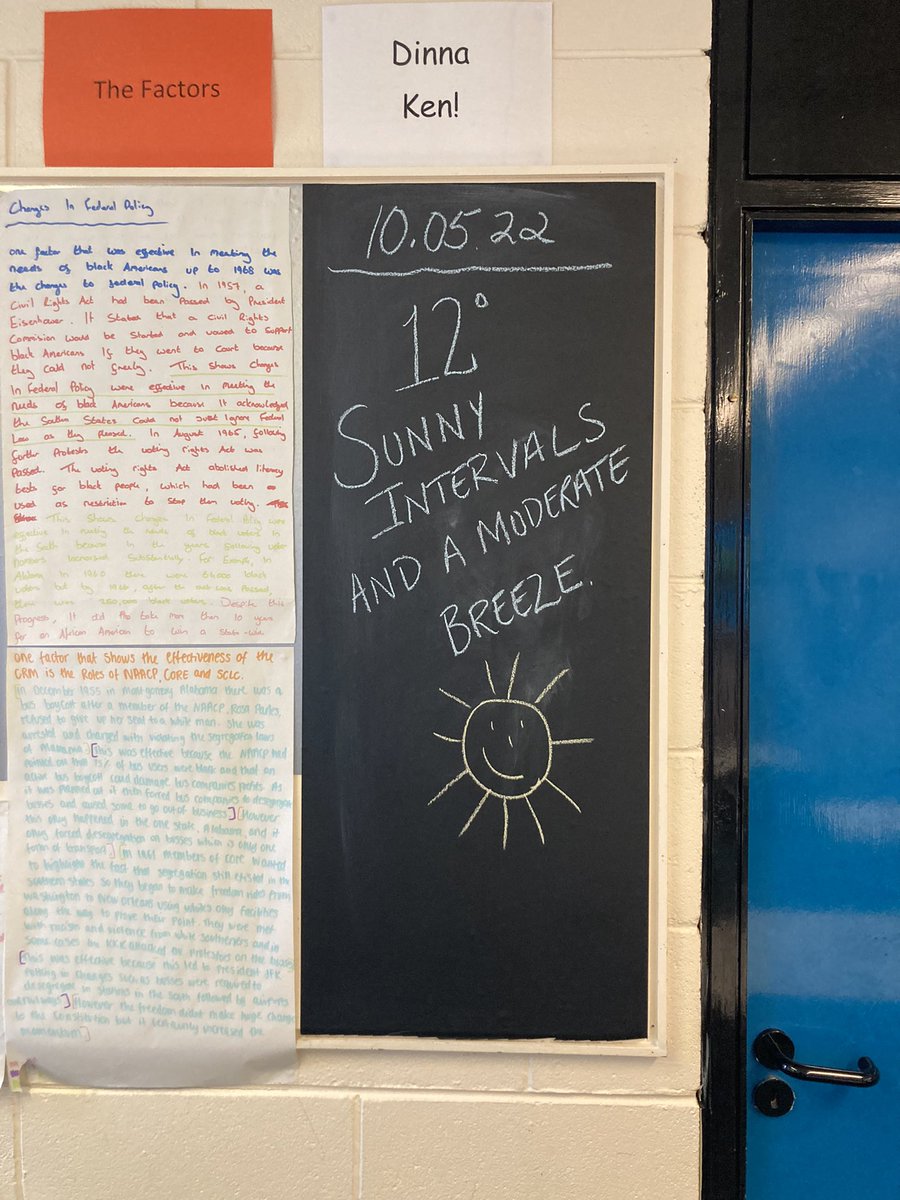 The Factors
Dinna
Ken!
Changes In Federal Policy
one factor that was effective In meeting the
needs of black Americans up to 1968 was
the changes to federal policy. In 1957, a
Civil Rights Act had been Passed by President
Eisenhower. It Stated that a Civil Rights
Commision would be Started and vowed to support
black Americans If they went to Court because
they could not freely. This shows Changes
In Federal Policy were effective in meeting the
needs of black Americans because it acknowledged
the Southern States Could not Just Ignore Federal
Law as they pleased. In August 1965, following
further Protests the voting rights Act was
Passed. The voting rights Act abolished literacy
tests for black people, which had been
used as restriction to stop them voting.
This Shows Changes In Federal Policy were
effective in meeting the needs of black voters In
the South because In the years following voter
numbers Increased Substantially. For Example, In
Alabama In 1960 there were black
voters but by after the act was Passed,
there was 250,000 black voters. Despite this
Progress, It did take more then 10 years
for an African American to win a state-wide
one factor that shows the effectiveness of the
CRM is the Roles of NAACP, CORE and SCLC.
In December 1955 in Montgomery Alabama there was a
bus boycott after a member of the NAACP, Rosa Parks,
refused to give up her seat to a white man. She was
arrested and charged with violating the segregation laws
of Alabama. [This was effective because the NAACP had
pointed out that 75% of bus users were black and that an
active bus boycott could damage bus companies profits. As
it was planned out it then forced bus companies to desegregate
busses and caused some to go out of business] [However
this only happened in the one state, Alabama, and it
only forced desegregation on busses which is only one
form of transport] In 1961 members of core wanted
to highlight the fact that segregation still existed in the
southern states so they began to make freedom rides from
washington to New Orleans using whites only facilities
along the way to prove their point. They were met
with racism and violence from white southeners and in
some cases the KKK attacked protestors on the busses
[This was effective because this led to President JFK
putting in changes such as busses were required to
desegregate in stations in the south followed by airports
and railways] [However the freedom didnt make huge changes
to the Constitution but it certainly increased the
momentum]
10.05.22
12°
SUNNY
INTERVALS
AND A MODERATE
BREEZE.